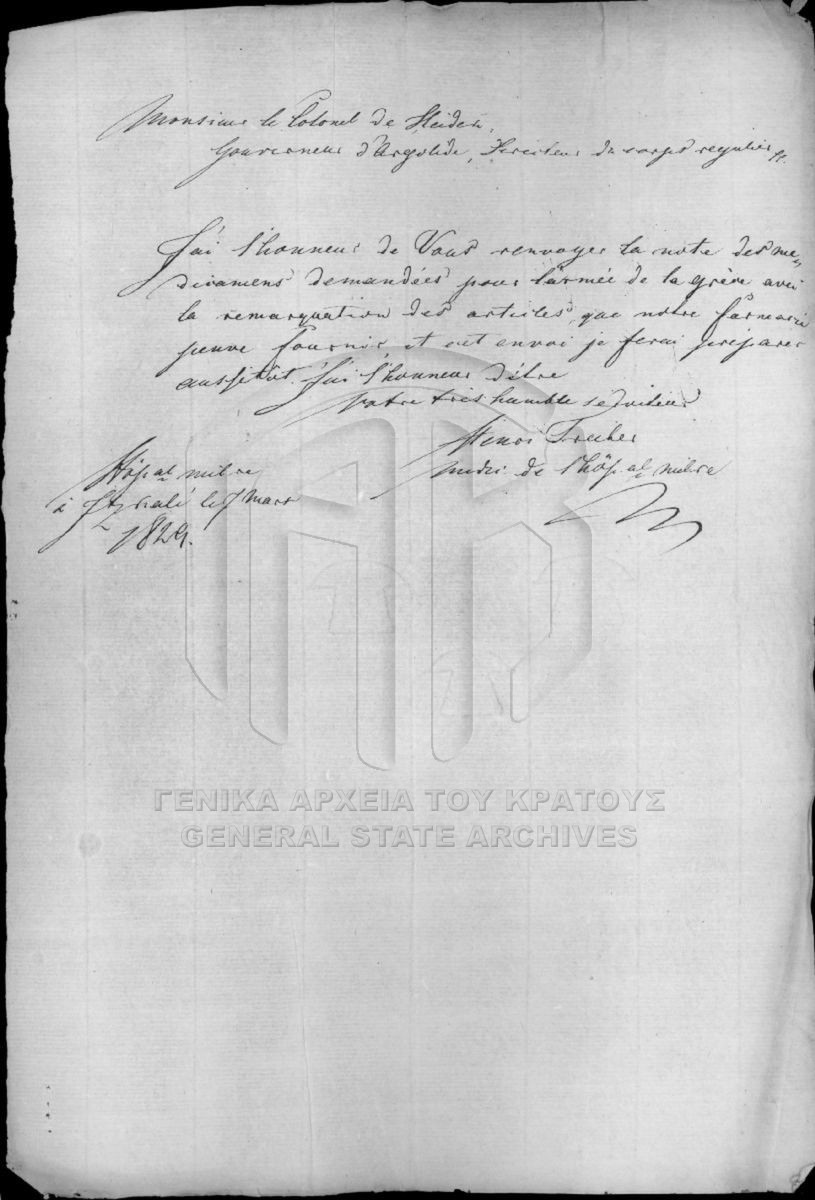 Monsieur le Colonel de Heidek,
Gouverneur d'Argolide, Directeur du corps regulier pp.
J'ai l'honneur de Vous renvoyer la note des me-
dicamens demandées pour l'armée de la grèce avec
la remarquation des articles, que notre farmacie
peuve fournir et cet envoi je ferai préparer
aussitôt. J'ai l'honneur d'être
votre très humble serviteur
Henri Treiber
medec de l'hôpal militre
Hôpal militre
à le 7 mars
1829.
ΓΕΝΙΚΑ ΑΡΧΕΙΑ ΤΟΥ ΚΡΑΤΟΥΣ
GENERAL STATE ARCHIVES